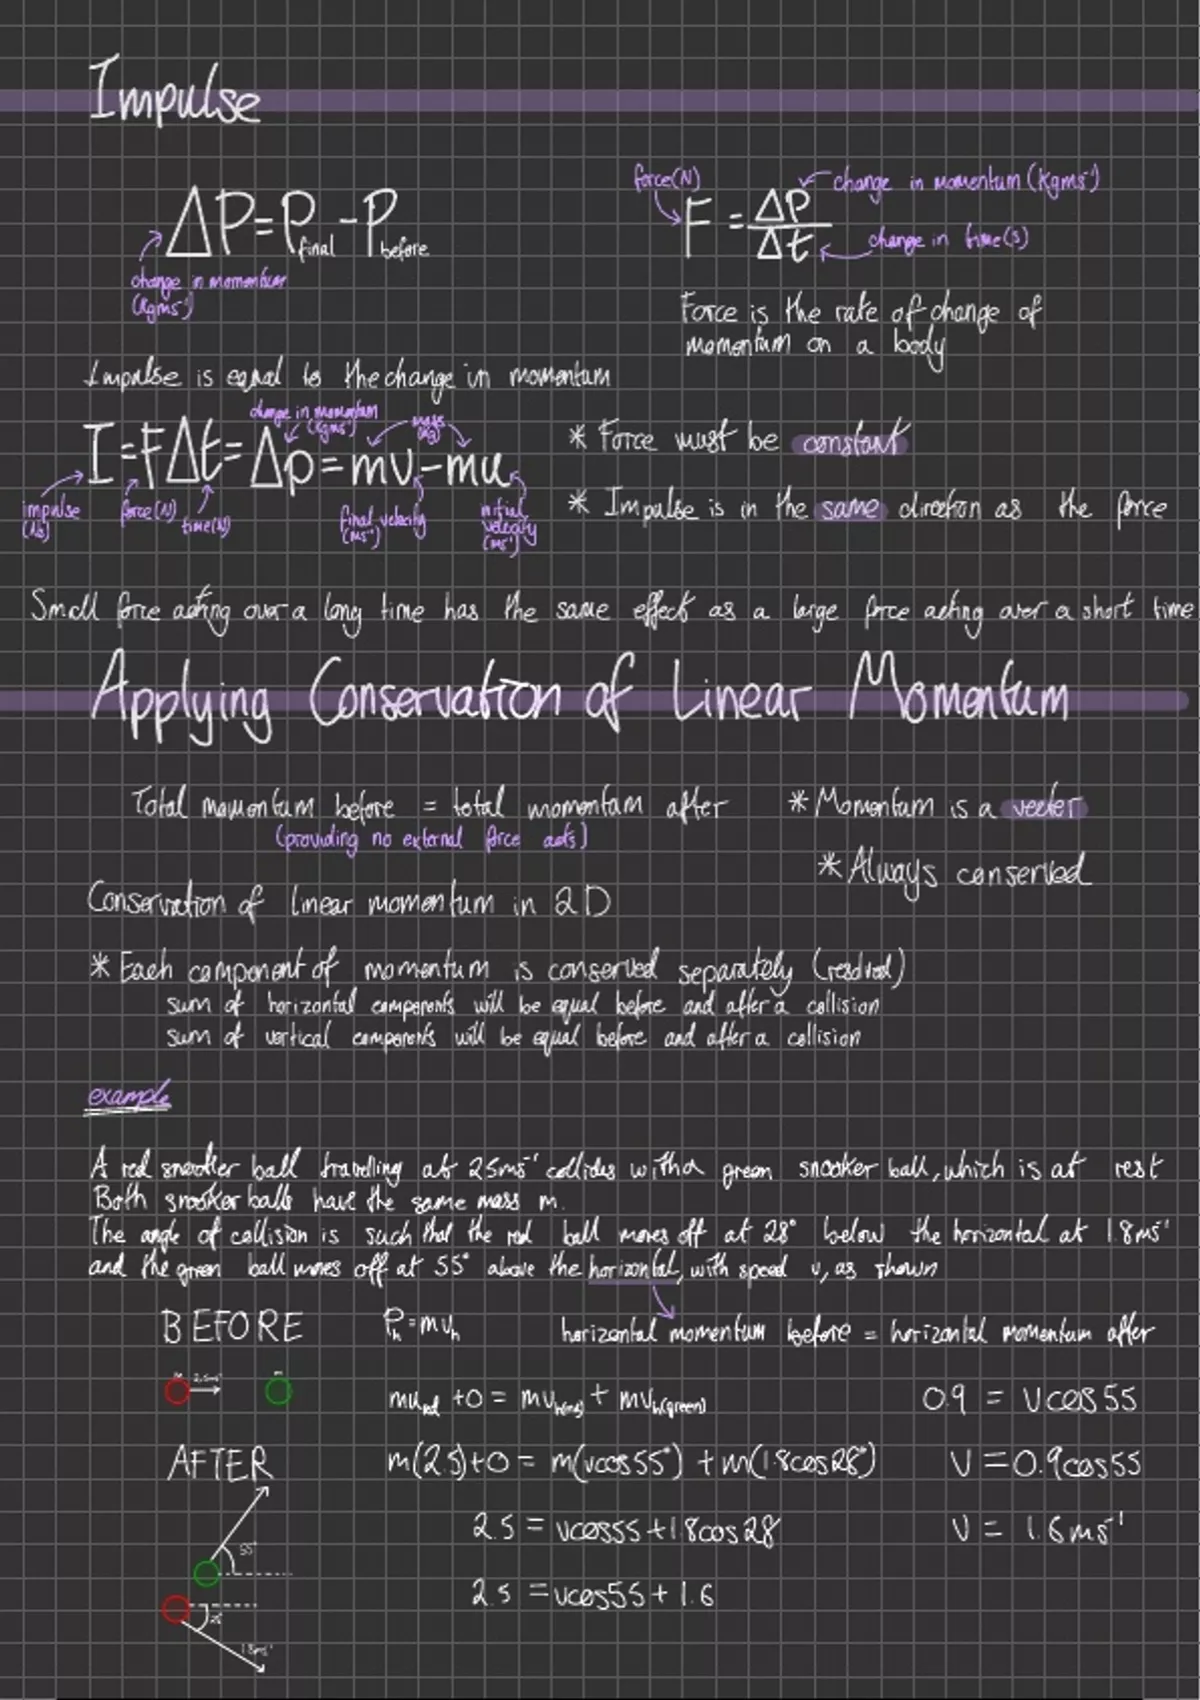 Impulse
ΔP = P final - P before
change in momentum (Kgms⁻¹)
force(N)
F = ΔP/Δt
change in momentum (Kgms⁻¹)
change in time(s)
Force is the rate of change of
momentum on a body
Impulse is equal to the change in momentum
change in momentum (Kgms⁻¹)
mass (Kg)
I = FΔt = Δp = mv - mu
impulse (Ns)
force(N)
time(s)
final velocity (ms⁻¹)
initial velocity (ms⁻¹)
* Force must be constant
* Impulse is in the same direction as the force
Small force acting over a long time has the same effect as a large force acting over a short time
Applying Conservation of Linear Momentum
Total momentum before = total momentum after
(providing no external force acts)
* Momentum is a vector
* Always conserved
Conservation of linear momentum in 2D
* Each component of momentum is conserved separately (resolved)
sum of horizontal components will be equal before and after a collision
sum of vertical components will be equal before and after a collision
example
A red snooker ball travelling at 2.5ms⁻¹ collides with a green snooker ball, which is at rest
Both snooker balls have the same mass m.
The angle of collision is such that the red ball moves off at 28° below the horizontal at 1.8ms⁻¹
and the green ball moves off at 55° above the horizontal, with speed v, as shown
BEFORE
Pₕ = mvₕ
horizontal momentum before = horizontal momentum after
2.5ms⁻¹
mu red + 0 = mv h(red) + mv h(green)
0.9 = vcos55
AFTER
m(2.5)+0 = m(vcos55°) + m(1.8cos28°)
V = 0.9cos55
2.5 = vcos55 + 1.8cos28
V = 1.6ms⁻¹
55°
2.5 = vcos55 + 1.6
28°
1.8ms⁻¹